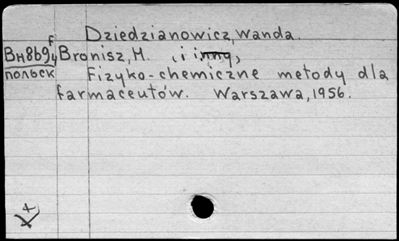 Dziedzianowicz, Wanda.
Вн8б94 Bronisz, H. i inną,
польск Fizyko-chemiczne metody dla
farmaceutów. Warszawa, 1956.